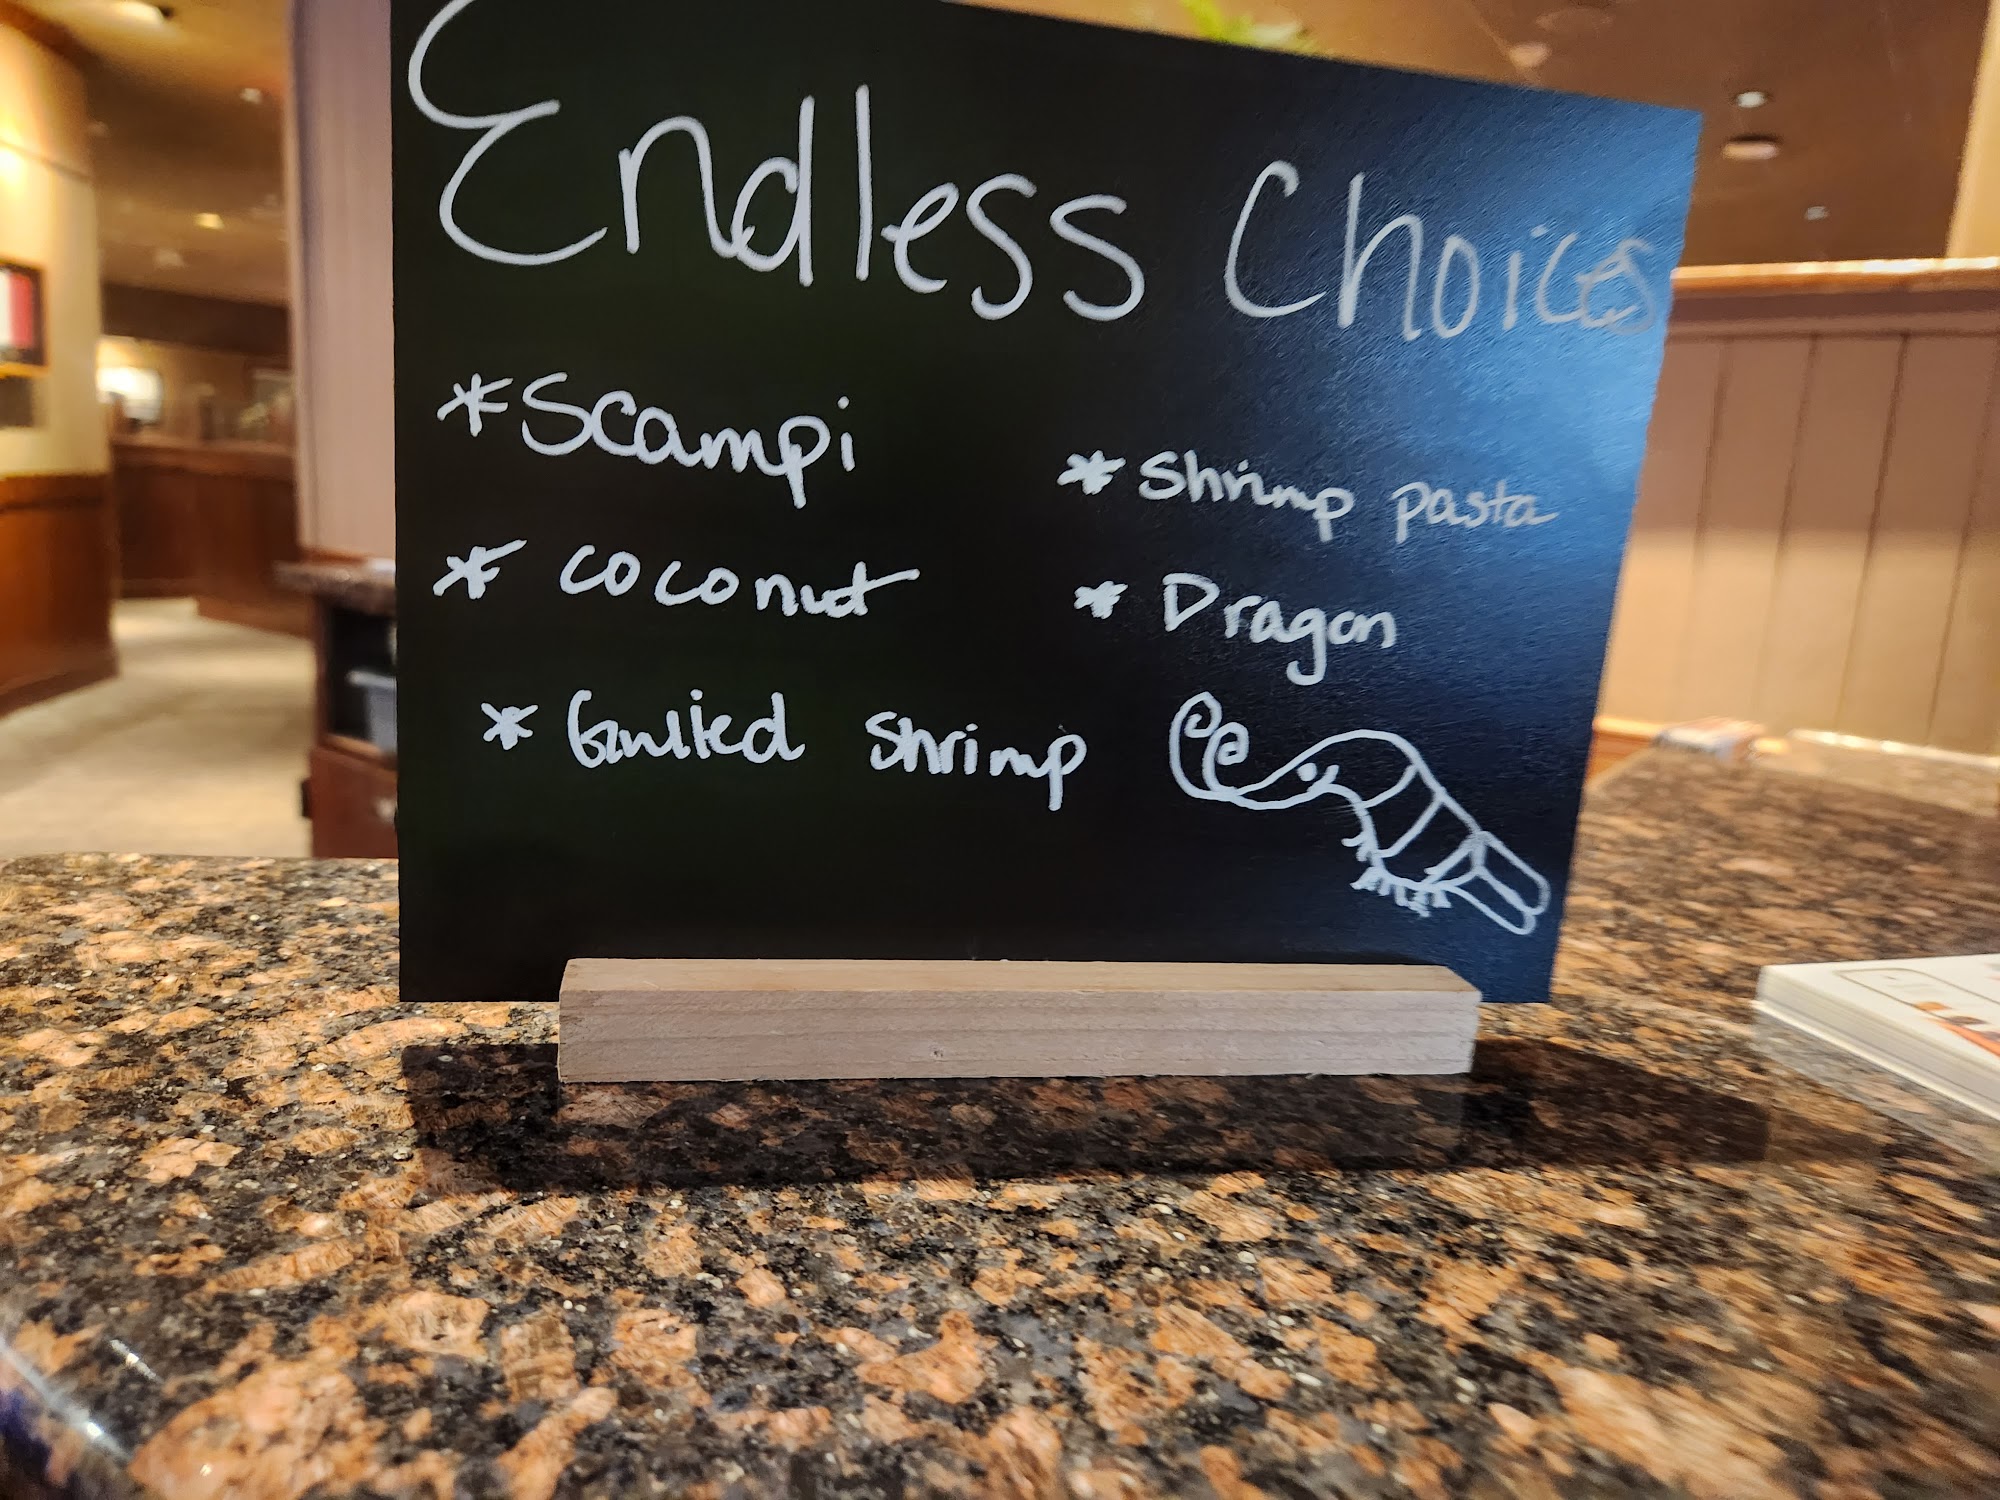 Endless Choices
*Scampi
* coconut
* Grilled shrimp
* Shrimp pasta
* Dragon